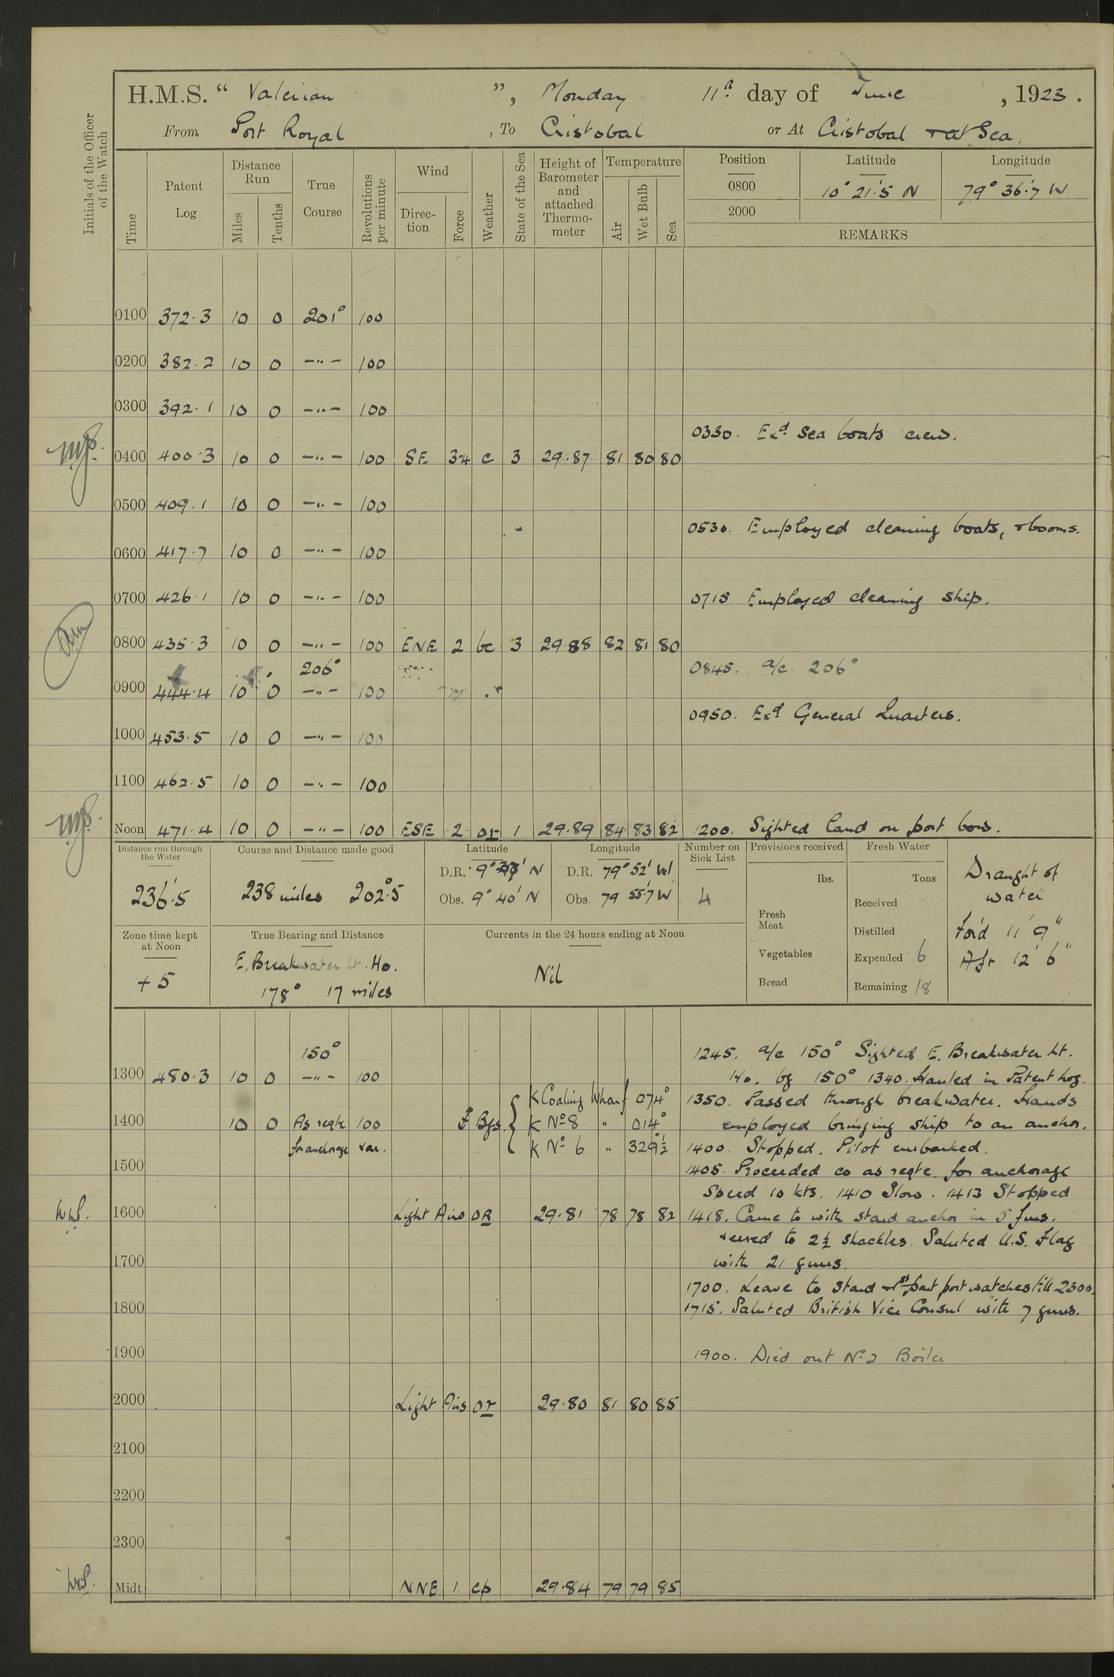 H.M.S. “ Valerian ”, Monday 11th day of June , 1923.
From Port Royal , To Cristobal or At Cristobal & at Sea.
Initials of the Officer of the Watch
Time Patent Log Distance Run Miles Tenths True Course Revolutions per minute Wind Direction Force Weather State of the Sea Height of Barometer and attached Thermometer Temperature Air Wet Bulb Sea
Position Latitude Longitude
0800 10° 21'.5 N 79° 36'.7 W
2000
REMARKS
0100 372.3 10 0 201° 100
0200 382.2 10 0 -"- 100
0300 392.1 10 0 -"- 100
0330. Exd. Sea boats crew.
0400 400.3 10 0 -"- 100 SE 34 c 3 29.87 81 80 80
0500 409.1 10 0 -"- 100
0530. Employed cleaning boats, & booms.
0600 417.7 10 0 -"- 100
0700 426.1 10 0 -"- 100
0715 Employed cleaning ship.
0800 435.3 10 0 -"- 100 ENE 2 bc 3 29.88 82 81 80
206°
0845. a/c 206°
0900 444.4 10 0 -"- 100
0950. Exd General Quarters.
1000 453.5 10 0 -"- 100
1100 462.5 10 0 -"- 100
Noon 471.4 10 0 -"- 100 ESE 2 or 1 29.89 84 83 82 1200. Sighted land on port bow.
Distance run through the Water
236'.5
Course and Distance made good
238 miles 202°.5
Latitude
D.R. 9° N
Obs. 9° 40' N
Longitude
D.R. 79° 52' W
Obs. 79 55'.7 W
Number on Sick List
4
Provisions received
lbs.
Fresh Meat
Vegetables
Bread
Fresh Water
Tons
Received
Distilled
Expended 6
Remaining 18
Draught of water
For'd 11' 9"
Aft 12' 6"
Zone time kept at Noon
+ 5
True Bearing and Distance
E. Breakwater Lt. Ho.
178° 17 miles
Currents in the 24 hours ending at Noon
Nil
150°
1245. a/c 150° Sighted E. Breakwater Lt.
1300 480.3 10 0 -"- 100
Ho. bg 150° 1340. Hauled in Patent Log.
K Coaling Wharf 074°
1350. Passed through breakwater. Hands
1400 10 0 As reqte 100 F Bgs. { K No 8 " 014°
employed bringing ship to an anchor.
for anchorage var. K No 6 " 329°½
1400. Stopped. Pilot embarked.
1500
1405. Proceeded co as reqte. for anchorage
Speed 10 kts. 1410 Slow. 1413 Stopped
1600 Light Airs OR 29.81 78 78 82
1418. Came to with starbd anchor in 5 fms.
veered to 2½ shackles. Saluted U.S. Flag
with 21 guns.
1700
1700. Leave to Starbd & 1st part port watches till 2300.
1800
1715. Saluted British Vice Consul with 7 guns.
1900
1900. Died out No 2 Boiler
2000 Light Airs or 29.80 81 80 85
2100
2200
2300
Midt NNE 1 cp 29.84 79 79 85